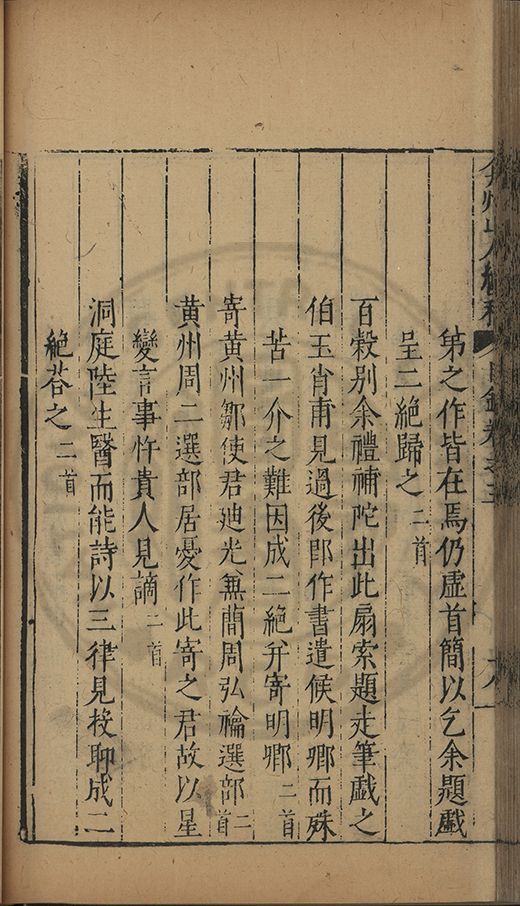 弟之作皆在焉仍虛首簡以乞余題戲
呈二絕歸之二首
百榖別余禮補陀出此扇索題走筆戲之
伯玉肖甫見過後郎作書遣候明卿而殊
苦一介之難因成二絕并寄明卿二首
寄黃州鄒使君迪光無簡周弘禴選部二首
黃州周二選部居憂作此寄之君故以星
變言事忤貴人見謫二首
洞庭陸生醫而能詩以三律見投聊成二
絕荅之二首